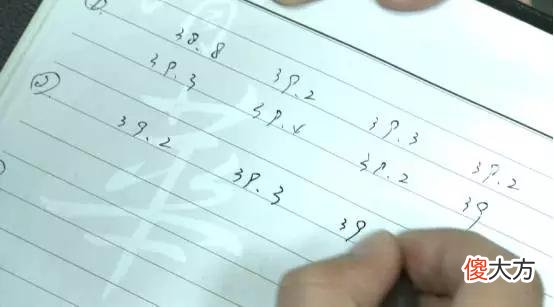 ①. 38.8 39.2 39.3 39.2
39.3 39.4 39.2 39
②. 39.2 39.3 39
傻大方